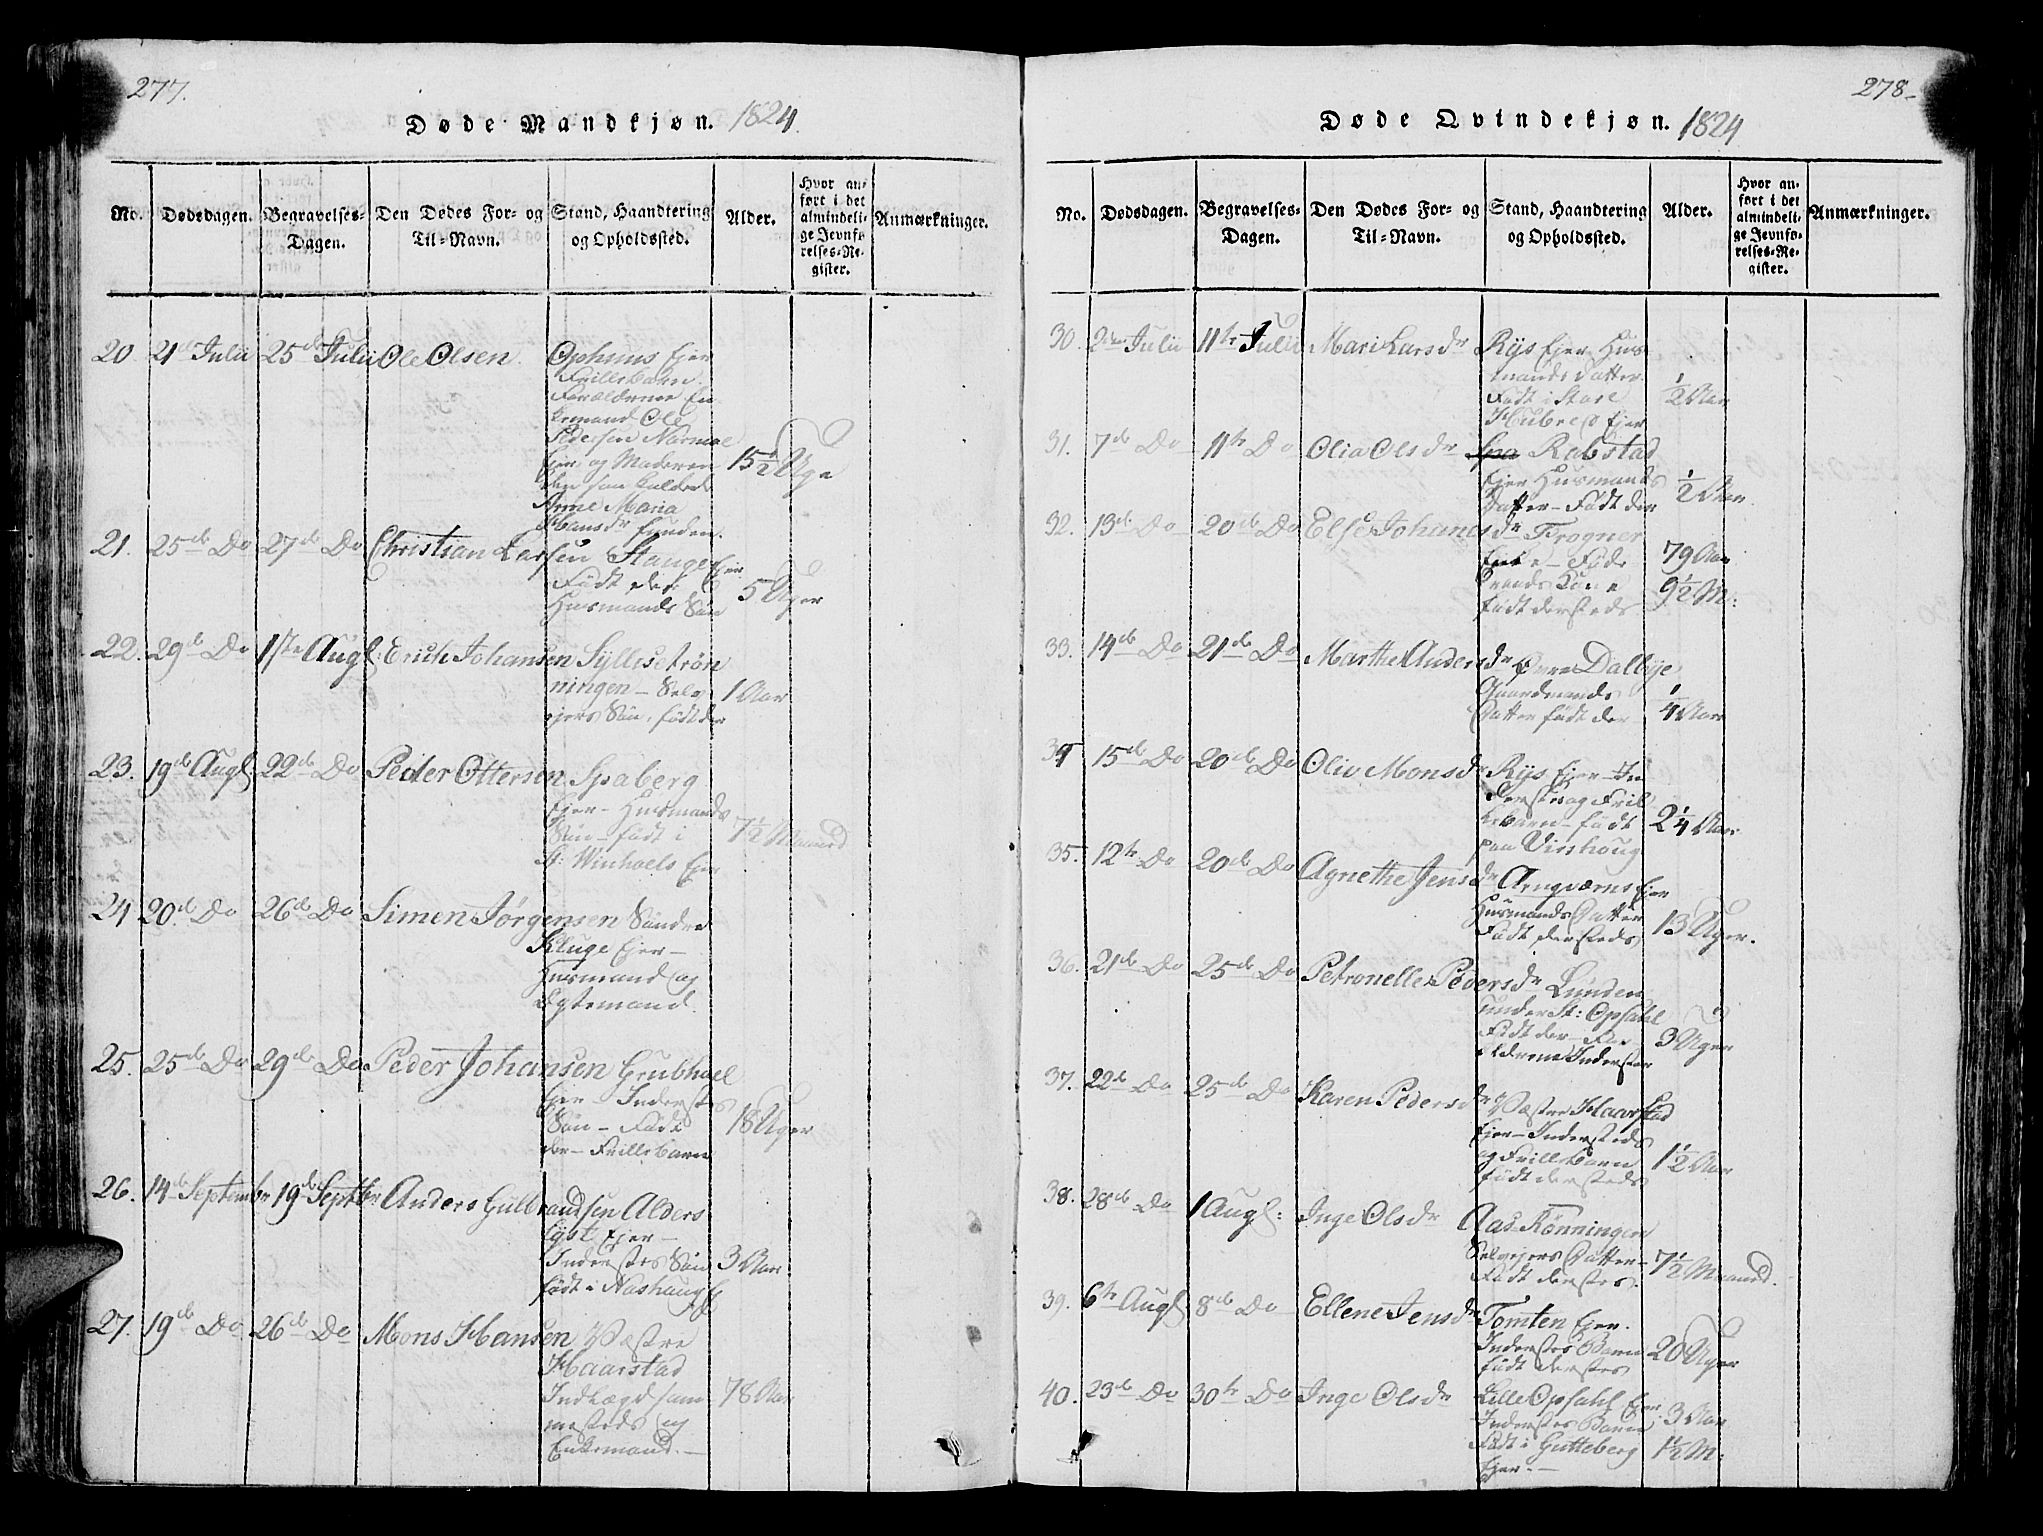 277.
Døde Mandkjøn. 1824.
No. Dødsdagen. Begravelses-Dagen. Den Dødes For- og Til-Navn. Stand, Haandtering og Opholdssted. Alder. Hvor anført i det almindelige Jevnførelses-Register. Anmærkninger.
20. 21de Julii 25de Julii Ole Olsen. Ophuus Eier
Frillebarn.
Forældrene En
kemand Ole
Pedersen Narmoe
Eier og Moderen
den saa kaldede
Anne Maria
Hansdr funden.
15½ Uge
21. 25de Do 27de Do Christian Larsen Stange Eier
Født der
Husmands Søn
5 Uger
22. 29de Do 1ste Augs: Erich Johansen Syllisetrøn
ningen – Selv
ejers Søn, født der
1 Aar
23. 19de Augs 22de Do Peder Ottersen Spaberg
Ejer – Husmands
Søn – født i
St: Winhaels Ejer
7½ Maaned
24 20de Do 26de Do Simen Jørgensen Søndre
Kluge Ejer –
Husmand og
Egtemand.
25. 25de Do 29de Do Peder Johansen Grubhoel
Ejer – Inderstes
Søn – Født
der – Frillebarn
18 Uger
26. 14de September 19de Septbr Anders Gulbrandsen Alders
lyst Ejer –
Inderstes Søn
født i Nashaug E
3 Aar
27. 19de Do 26de Do Mons Hansen Væstre
Haarstad
Indlægd sam
mesteds og
Enkemand. –
78 Aar
278.
Døde Qvindekjøn. 1824
No. Dødsdagen. Begravelses-Dagen. Den Dødes For- og Til-Navn. Stand, Haandtering og Opholdssted. Alder. Hvor anført i det almindelige Jevnførelses-Register. Anmærkninger.
30. 2den Julii 11te Julii Mari Larsdr Rys Ejer Hus
mands Datter.
Født i Store
Hubred Ejer
½ Aar
31. 7de Do 11te Do Olia Olsdr Spa Rabstad
Ejer Husmands
Datter – Født der
½ Aar.
32. 13de Do 20de Do Else Johanesdr Frogner
Eiere – Føde
raads Kone
født dersteds
79 Aar
9½ M:
33. 14de Do 21de Do Marthe Andersdr Øvre Dalbye
Gaardmands
Datter født der
¼ Aar
34 15de Do 20de Do Oliv Monsdr Rys Ejer – In
derste og Fril
lebarn – født
paa Virshoug
2¼ Aar
35. 12te Do 20de Do Agnethe Jensdr Arngværns Ejer
Husmands Datter
Født dersteds
13 Uger.
36. 21de Do 25de Do Petronelle Pedersdr Lunden
under St: Opsahl
Født der – For
ældrene Inderster
3 Uger
37. 22de Do 25de Do Karen Pedersdr Væstre Haarstad
Ejer – Inderstes
og Frillebarn
født dersteds
1½ Aar
38. 28de Do 1 Augs: Inge Olsdr Aas Rønningen
Selvejers Datter –
Født dersteds.
7½ Maaned.
39. 6te Augs 8de Do Ellene Jensdr Tomten Ejer.
Inderstes Barn
født dersteds
20 Uger
40. 23de Do 30te Do Inge Olsdr Lille Opsahl Ejer
Inderstes Barn
Født i Gutteberg
Ejer. –
3 Aar
1½ M: